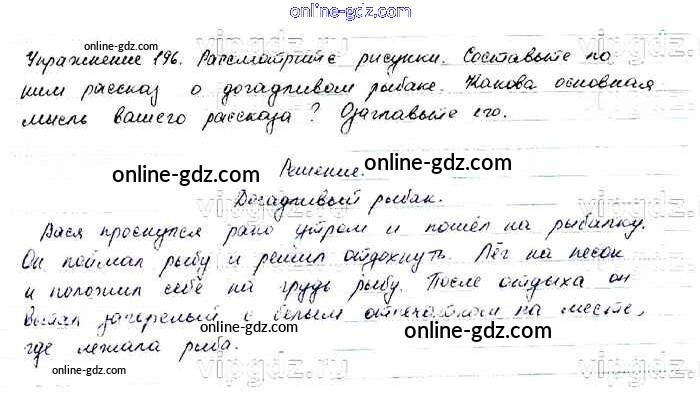 online-gdz.com
online-gdz.com
Упражнение 196. Рассмотрите рисунки. Составьте по
ним рассказ о догадливом рыбаке. Какова основная
мысль вашего рассказа? Озаглавьте его.
Решение.
online-gdz.com online-gdz.com
Догадливый рыбак.
Вася проснулся рано утром и пошёл на рыбалку.
Он поймал рыбу и решил отдохнуть. Лёг на песок
и положил себе на грудь рыбу. После отдыха он
встал загорелый с белым отпечатком на месте,
online-gdz.com online-gdz.com
где лежала рыба.
online-gdz.com